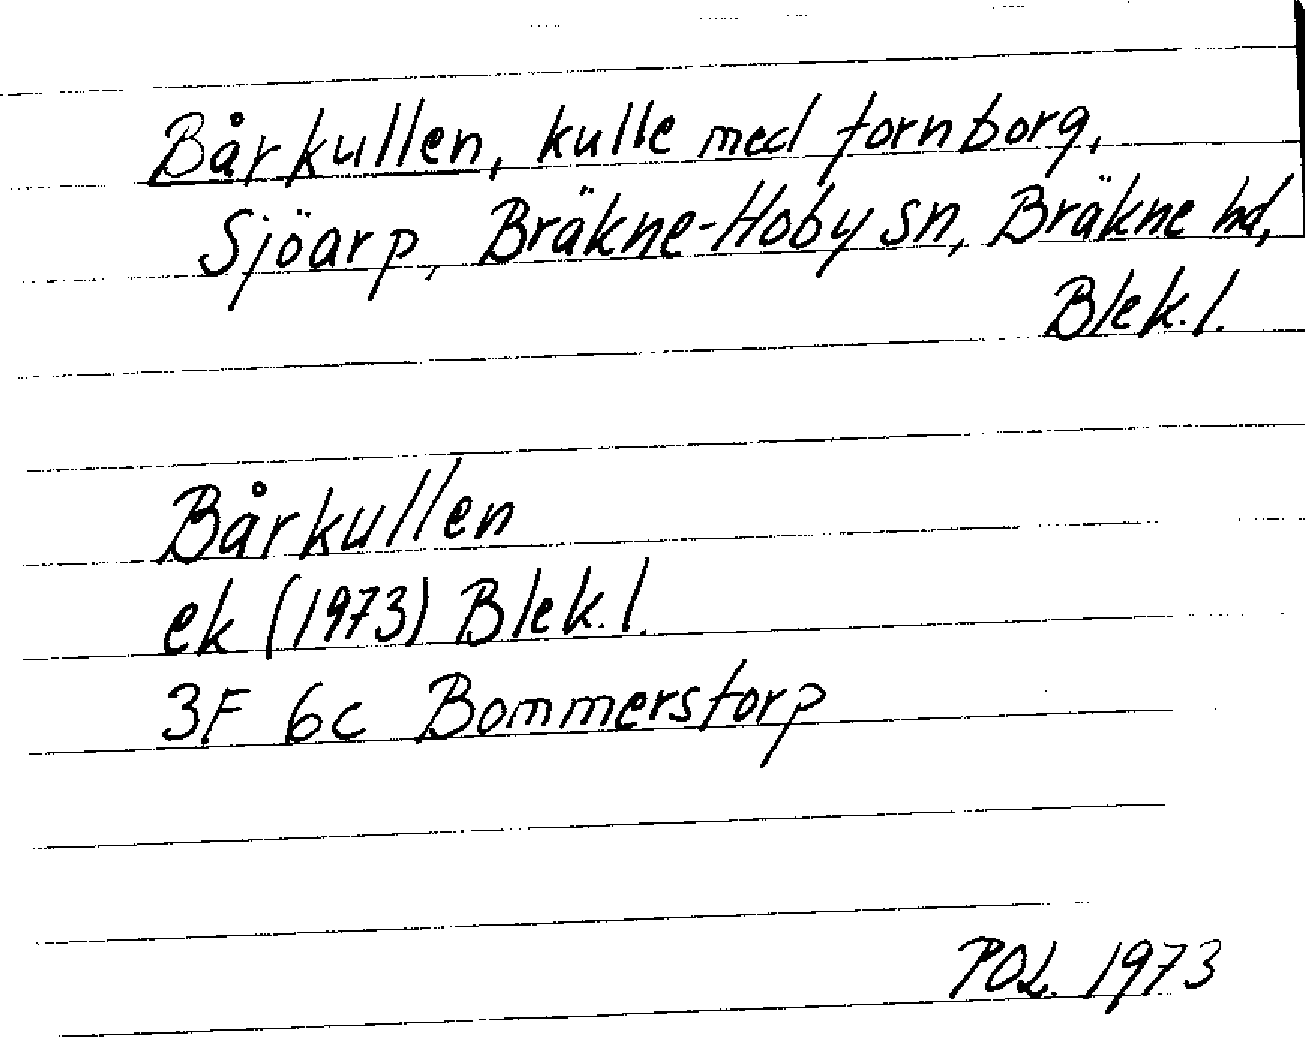 Bårkullen, kulle med fornborg,
Sjöarp, Bräkne-Hoby sn, Bräkne hd,
Blek.l.
Bårkullen
ek (1973) Blek.l.
3F 6c Bommerstorp
POL. 1973